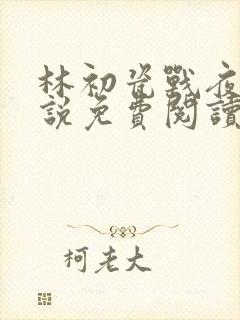 林初瓷戰夜
說免費閱讀
柯老大